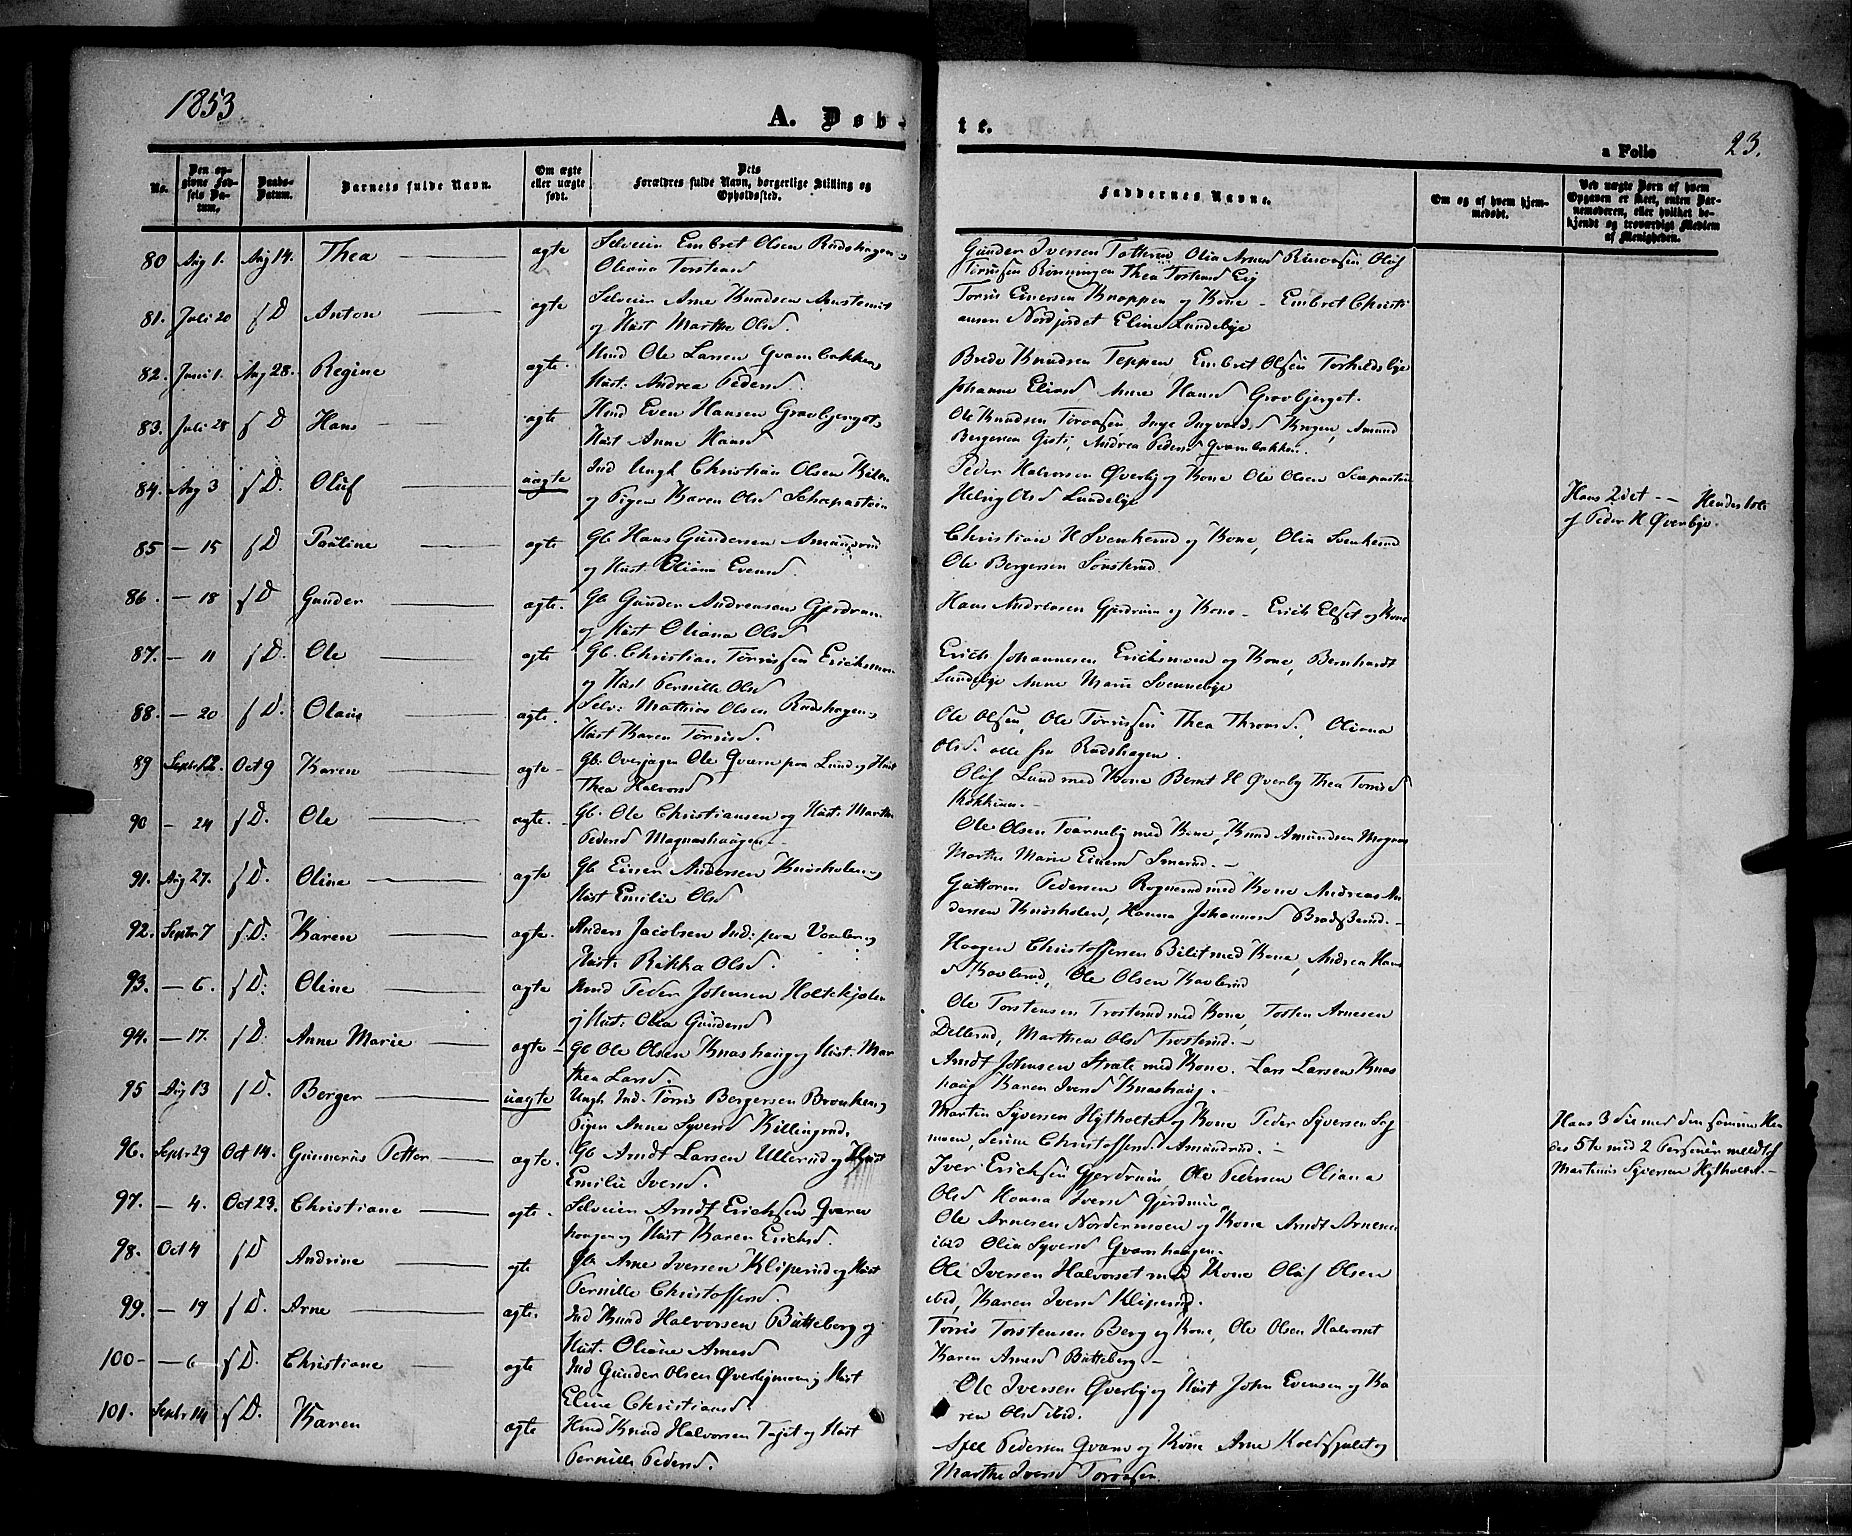 1853
A. Døb-
te.
a Folio
23.
No.
Den opgivne Fødsels Datum.
Daabs-Datum.
Barnets fulde Navn.
Om ægte eller uægte født.
Dets Forældres fulde Navn, borgerlige Stilling og Opholdssted.
Faddernes Navne.
Om og af hvem hjemmedøbt.
Ved uægte Børn af hvem Opgaven er skeet, enten Barnemoderen, eller hvilket bekjendt og troværdigt Medlem af Menigheden.
80 Aug 1. Aug 14. Thea ægte Selveier Embret Olsen Rødshagen
Oliana Torstensd
Gunder Iversen Olia Arnesd Olof
Rønningen Thea Torstensd Eig
81. Juli 20 s D Anton ægte Selveier Arne Knudsen
og Hust Marthe Olsd.
Torris Einersen Knappen og Kone - Embret Christi
ansen Nordjordet Eline Lundebye
82. Juni 1. Aug 28. Regine ægte. Hmd Ole Larsen Qvernbakken
Hust. Andrea Pedersd.
Brede Knudsen Teppen Embret Olsen
Johanne Eliasd Anne Hansd Gravbjerget.
83. Juli 28 s D Hans ægte Hmd Even Hansen Gravbjerget
Hust Anne Hansd
Ole Knudsen Inge Ingvalds Amund
Bergersen Andrea Peders Qvernbakken.
84. Aug 3 s D. Oluf uægte Ind Ungk Christian Olsen
og Pigen Karen Olsd
Peder Halvorsen Øverby og Kone Ole Olsen
Helvig Olsd Lundebye
Hans 2det -- Hendes 1ste
af Peder H Øverbye.
85 - 15 s D Pauline ægte Gb. Hans Gundersen Amundrud
og Hust. Oliana Evensd.
Christian H Svenkerud og Kone, Olia Svenkerud
Ole Bergersen
86. - 18 s D Gunder ægte. Gb Gunder Andreasen Gjerdrum
og Hust Oliana Olsd
Hans Andreasen Gjerdrum og Kone - Erick Elset og Kone
87. - 11 s D. Ole ægte Gb. Christian Torrissen Ericksmoen
og Hust Pernille Olsd
Erick Johannesen Ericksmoen og Kone, Bernhardt
Lundebye Anne Marie Svennebye
88. - 20 s D. Olaus ægte. Selv: Mathias Olsen Rødshagen
Hust Karen Torrisd.
Ole Olsen, Ole Torrissen Thea Thronsd., Oliana
Olsd. alle fra Rødshagen.
89 Septr 12. Oct 9 Karen ægte - Gb. Overjæger Ole Qværn paa Lund og Hust
Thea Halvorsd
Olof Lund med Kone Bernt H Øverby Thea Torrisd
90 - 24 s D. Ole ægte. - Gb. Ole Christiansen og Hust. Marthe
Pedersd Magnashaugen
Ole Olsen med Kone, Knud Amundsen
Marthe Marie Einersd
91. Aug 27. s D. Oline ægte Gb Einer Andersen Knasholen
Hust Emilie Olsd
Guttorm Pedersen Rognerud med Kone Andreas An
dersen Knasholen, Hanna Johannesd
92. Septr 7 s D: Karen ægte. Anders Jacobsen Ind: paa Vaaler
Hust. Rikka Olsd.
Haagen Christoffersen med Kone, Andrea Hans
d Kavlerud, Ole Olsen Kavlerud
93. - 6. s D: Oline ægte Hmd Peder Johnsen Holtekjølen
og Hust: Olea Gundersd
Ole Torstensen Trosterud med Kone, Torsten Arnesen
Dellerud, Marthea Olsd Trosterud. -
94. - 17. s D. Anne Marie ægte - Gb Ole Olsen Knashaug og Hust. Mar
thea Larsd.
Arndt Johnsen Strate med Kone. Lars Larsen Knas
haug Karen Iversd Knashaug.
95 Aug 13 s D. Berger uægte Ungk. Ind. Torris Bergersen
Pigen Anne Syversd Killingrud.
Martin Syversen Hytholtet og Kone Peder Syversen
moen, Serine Christoffersd. Amundrud. -
Hans 3die med den samme Hen
des 5te med 2 Personer meldt af
Martinus Syversen Hytholtet. -
96. Septr 29 Oct 14. Gunnerus Petter ægte. Gb Arndt Larsen Ullerud og Hust
Emilie Iversd.
Iver Ericksen Gjerdrum, Ole Pedersen Oliana
Olsd Hanna Iversd Gjerdrum
97. - 4. Oct 23. Christiane ægte. Selveier Arndt Ericksen Qværn
haugen og Hust Karen Ericksd.
Ole Arnesen Nordermoen og Kone Arndt Arnesen
ibid Olia Syversd Qværnhaugen.
98. Oct 4 s D Andrine ægte Gb. Arne Iversen Kliperud og Hust
Pernille Christoffersd.
Ole Iversen Halvorset med Kone Olof Olsen
ibid, Karen Iversd Kliperud.
99. - 19 s D. Arne ægte. Ind Knud Halvorsen Butteberg og
Hust. Oliane Arnesd
Torris Torstensen Berg og Kone, Ole Olsen Halvorset
Karen Arnesd Butteberg -
100 - - 6 s D. Christiane ægte Ind Gunder Olsen Øverbymoen Hust
Eline Christiansd.
Ole Iversen Øverby og Hust John Evensen og Ka
ren Olsd ibid.
101. Septr 14 s D. Karen ægte Hmd Knud Halvorsen og Hust
Pernille Pedersd.
Pedersen Qværn og Kone Arne
Marthe Iversd